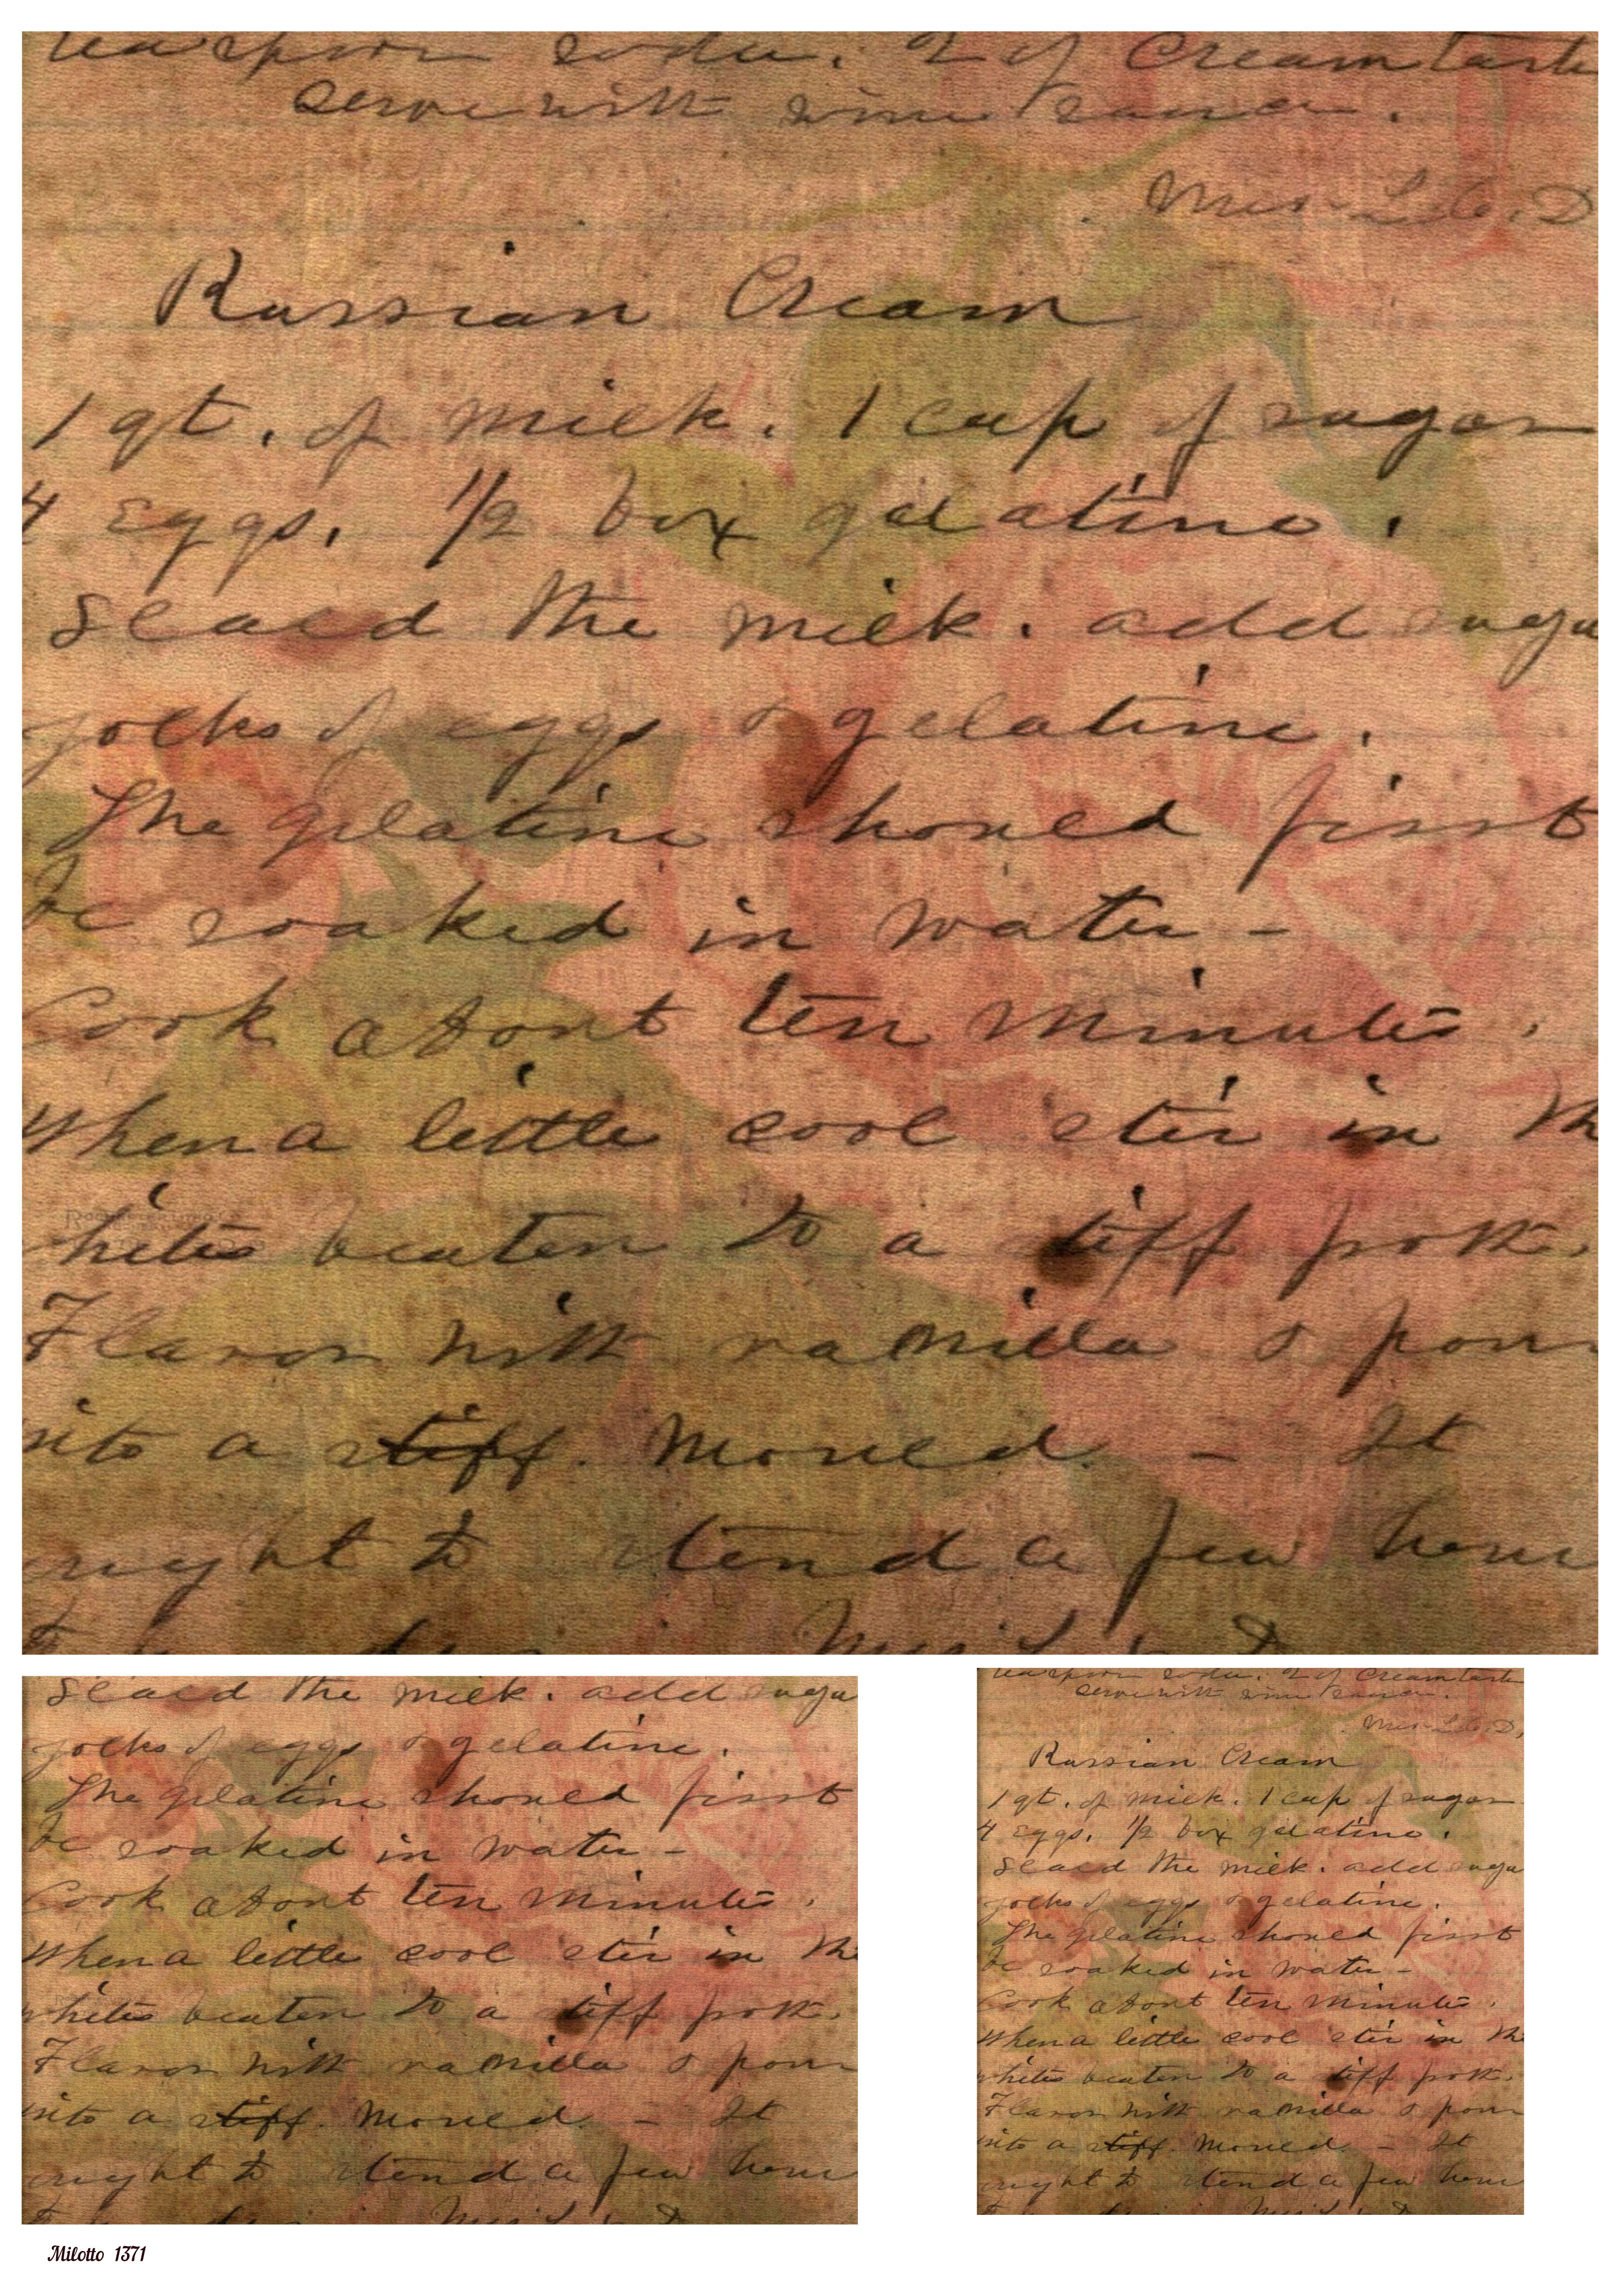 teaspoon soda. 2 of Cream tarta
serve with wine sauce.
Mrs. L. C. D
Russian Cream
1 qt. of milk. 1 cup of sugar
4 eggs. 1/2 box gelatine.
Scald the milk. add suga
yolks of eggs & gelatine.
The gelatine should first
be soaked in water -
Cook about ten minutes.
When a little cool stir in th
whites beaten to a stiff froth.
Flavor with vanilla & pour
into a stiff. mould. - It
ought to stand a few hour
Scald the milk. add suga
yolks of eggs & gelatine.
The gelatine should first
be soaked in water -
Cook about ten minutes.
When a little cool stir in the
whites beaten to a stiff froth.
Flavor with vanilla & pour
into a stiff. mould. - It
ought to stand a few hour
teaspoon soda. 2 of Cream tarta
serve with wine sauce.
Mrs. L. C. D.
Russian Cream
1 qt. of milk. 1 cup of sugar
4 eggs. 1/2 box gelatine.
Scald the milk. add suga
yolks of eggs & gelatine.
The gelatine should first
be soaked in water -
Cook about ten minutes.
When a little cool stir in the
whites beaten to a stiff froth.
Flavor with vanilla & pour
into a stiff. mould. - It
ought to stand a few hour
Milotto 1371